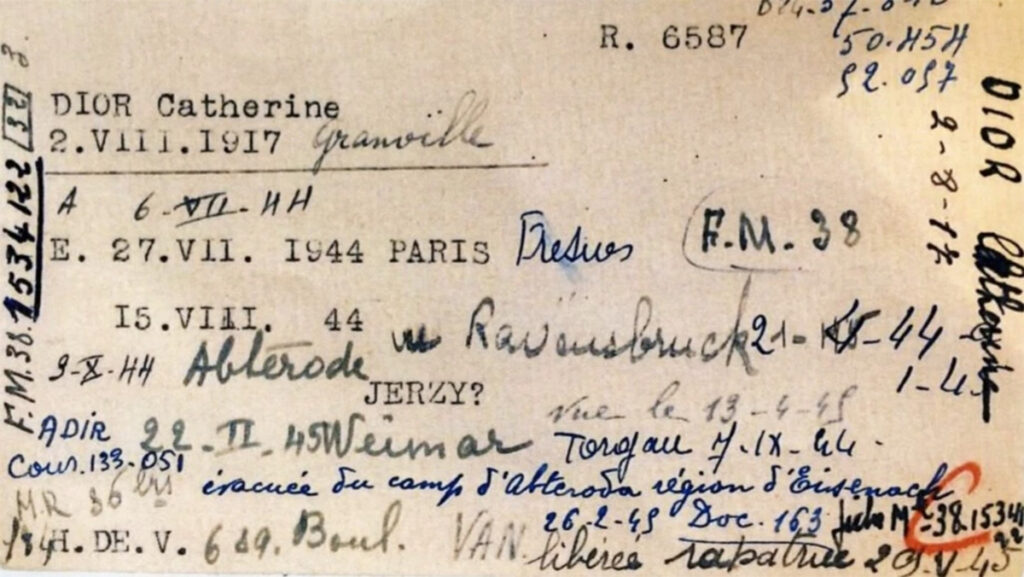 R. 6587
50.454
52.057
DIOR Catherine
2.VIII.1917 Granville
A 6-VII-44
E. 27.VII. 1944 PARIS Fresnes
F.M. 38
15.VIII. 44 Ravensbruck 21- -44
1-45
9-X-44 Abterode
JERZY?
vue le 13-4-45
ADIR 22-II-45 Weimar Torgau 7-IX-44.
Cour.133-051 évacuée du camp d'Abteroda région d'Eisenach
M.R 36 bis
26-2-45 Doc. 163
H.DE.V. 6 Boul. VAN libérée rapatriée
F.M.38.1534122/32/
DIOR Catherine
2-8-17